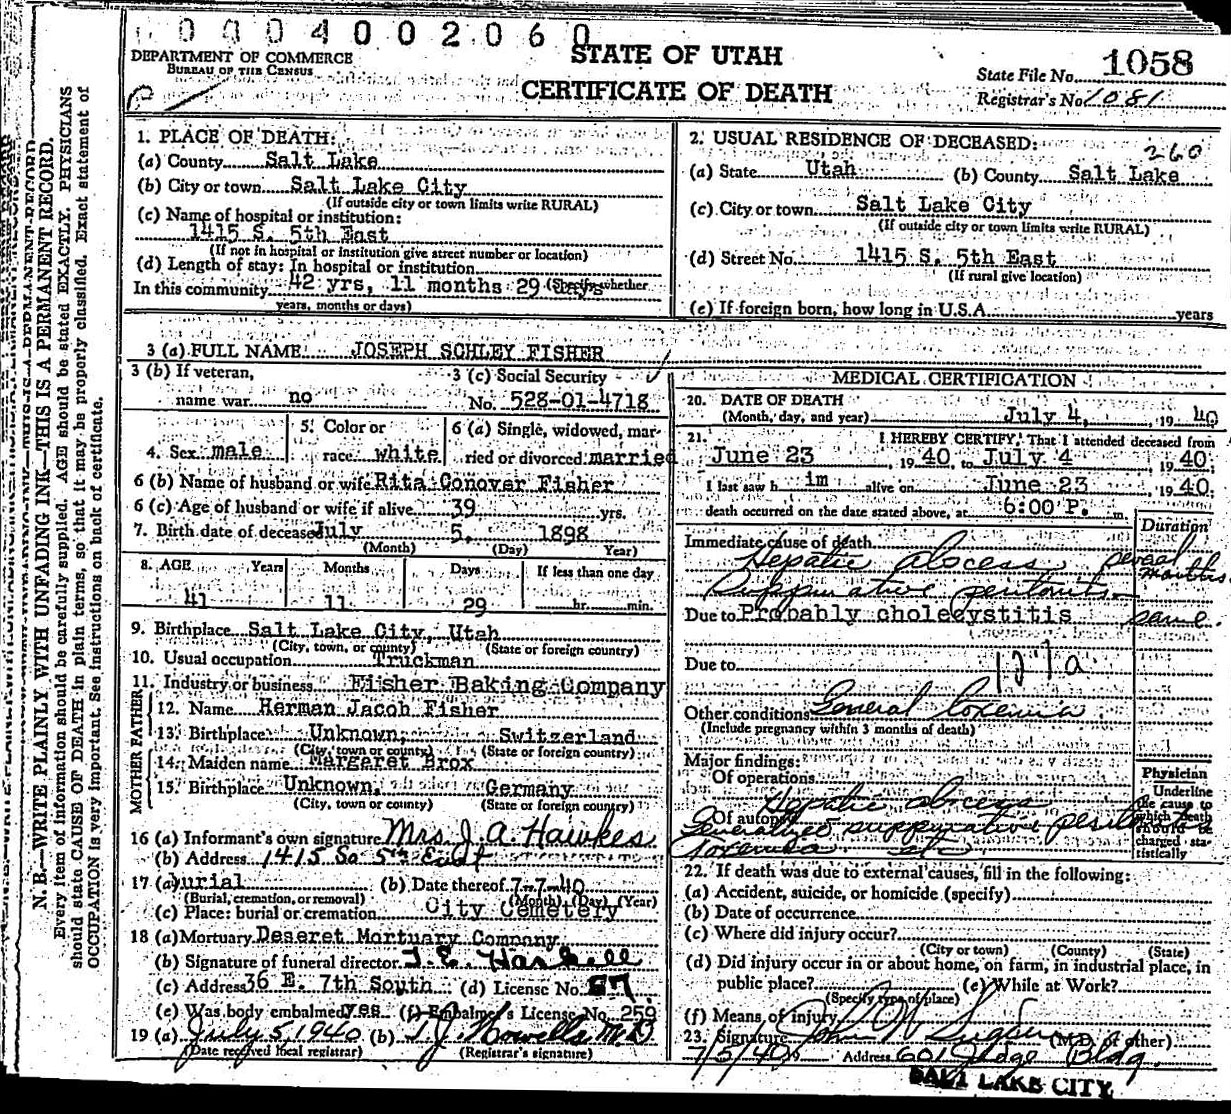 0 0 0 4 0 0 2 0 6 0
DEPARTMENT OF COMMERCE
BUREAU OF THE CENSUS
STATE OF UTAH
CERTIFICATE OF DEATH
State File No. 1058
Registrar's No. 1081
N. B.—WRITE PLAINLY WITH UNFADING INK—THIS IS A PERMANENT RECORD.
Every item of information should be carefully supplied. AGE should be stated EXACTLY. PHYSICIANS
should state CAUSE OF DEATH in plain terms, so that it may be properly classified. Exact statement of
OCCUPATION is very important. See instructions on back of certificate.
1. PLACE OF DEATH:
(a) County Salt Lake
(b) City or town Salt Lake City
(If outside city or town limits write RURAL)
(c) Name of hospital or institution:
1415 S. 5th East
(If not in hospital or institution give street number or location)
(d) Length of stay: In hospital or institution
In this community 42 yrs, 11 months 29 days (Specify whether
years, months or days)
2. USUAL RESIDENCE OF DECEASED:
260
(a) State Utah (b) County Salt Lake
(c) City or town Salt Lake City
(If outside city or town limits write RURAL)
(d) Street No. 1415 S. 5th East
(If rural give location)
(e) If foreign born, how long in U.S.A. years
3 (a) FULL NAME JOSEPH SCHLEY FISHER
3 (b) If veteran, 3 (c) Social Security
name war no No. 528-01-4718
4. Sex male 5. Color or race white 6 (a) Single, widowed, married or divorced married
6 (b) Name of husband or wife Rita Conover Fisher
6 (c) Age of husband or wife if alive 39 yrs.
7. Birth date of deceased July 5, 1898
(Month) (Day) Year)
8. AGE Years Months Days If less than one day
41 11 29 hr. min.
9. Birthplace Salt Lake City, Utah
(City, town, or county) (State or foreign country)
10. Usual occupation Truckman
11. Industry or business Fisher Baking Company
FATHER
12. Name Herman Jacob Fisher
13. Birthplace Unknown, Switzerland
(City, town or county) (State or foreign country)
MOTHER
14. Maiden name Margaret Brox
15. Birthplace Unknown, Germany
(City, town or county) (State or foreign country)
16 (a) Informant's own signature Mrs. J. A. Hawkes
(b) Address 1415 So 5th East
17 (a) burial (b) Date thereof 7-7-40
(Burial, cremation, or removal) (Month) (Day) (Year)
(c) Place: burial or cremation City Cemetery
18 (a) Mortuary Deseret Mortuary Company
(b) Signature of funeral director
(c) Address 36 E. 7th South (d) License No. 57
(e) Was body embalmed yes (f) Embalmer's License No. 259
19 (a) July 5, 1940 (b) T. J. Howells M D
(Date received local registrar) (Registrar's signature)
MEDICAL CERTIFICATION
20. DATE OF DEATH
(Month, day, and year) July 4, 1940
21. I HEREBY CERTIFY, That I attended deceased from
June 23, 1940, to July 4 1940.
I last saw h im alive on June 23 1940.
death occurred on the date stated above, at 6:00 P. m.
Duration
Immediate cause of death
Hepatic abscess several months
Suppurative peritonitis
Due to Probably cholecystitis same.
Due to 127a
Other conditions General toxemia
(Include pregnancy within 3 months of death)
Major findings:
Of operations
Hepatic abscess
Of autopsy
Generalized suppurative peritonitis
Toxemia
Physician
Underline
the cause to
which death
should be
charged statistically
22. If death was due to external causes, fill in the following:
(a) Accident, suicide, or homicide (specify)
(b) Date of occurrence
(c) Where did injury occur?
(City or town) (County) (State)
(d) Did injury occur in or about home, on farm, in industrial place, in
public place? (e) While at Work?
(Specify type of place)
(f) Means of injury
23. Signature (M.D. or other)
7/5/40 Address 601 Judge Bldg.
SALT LAKE CITY